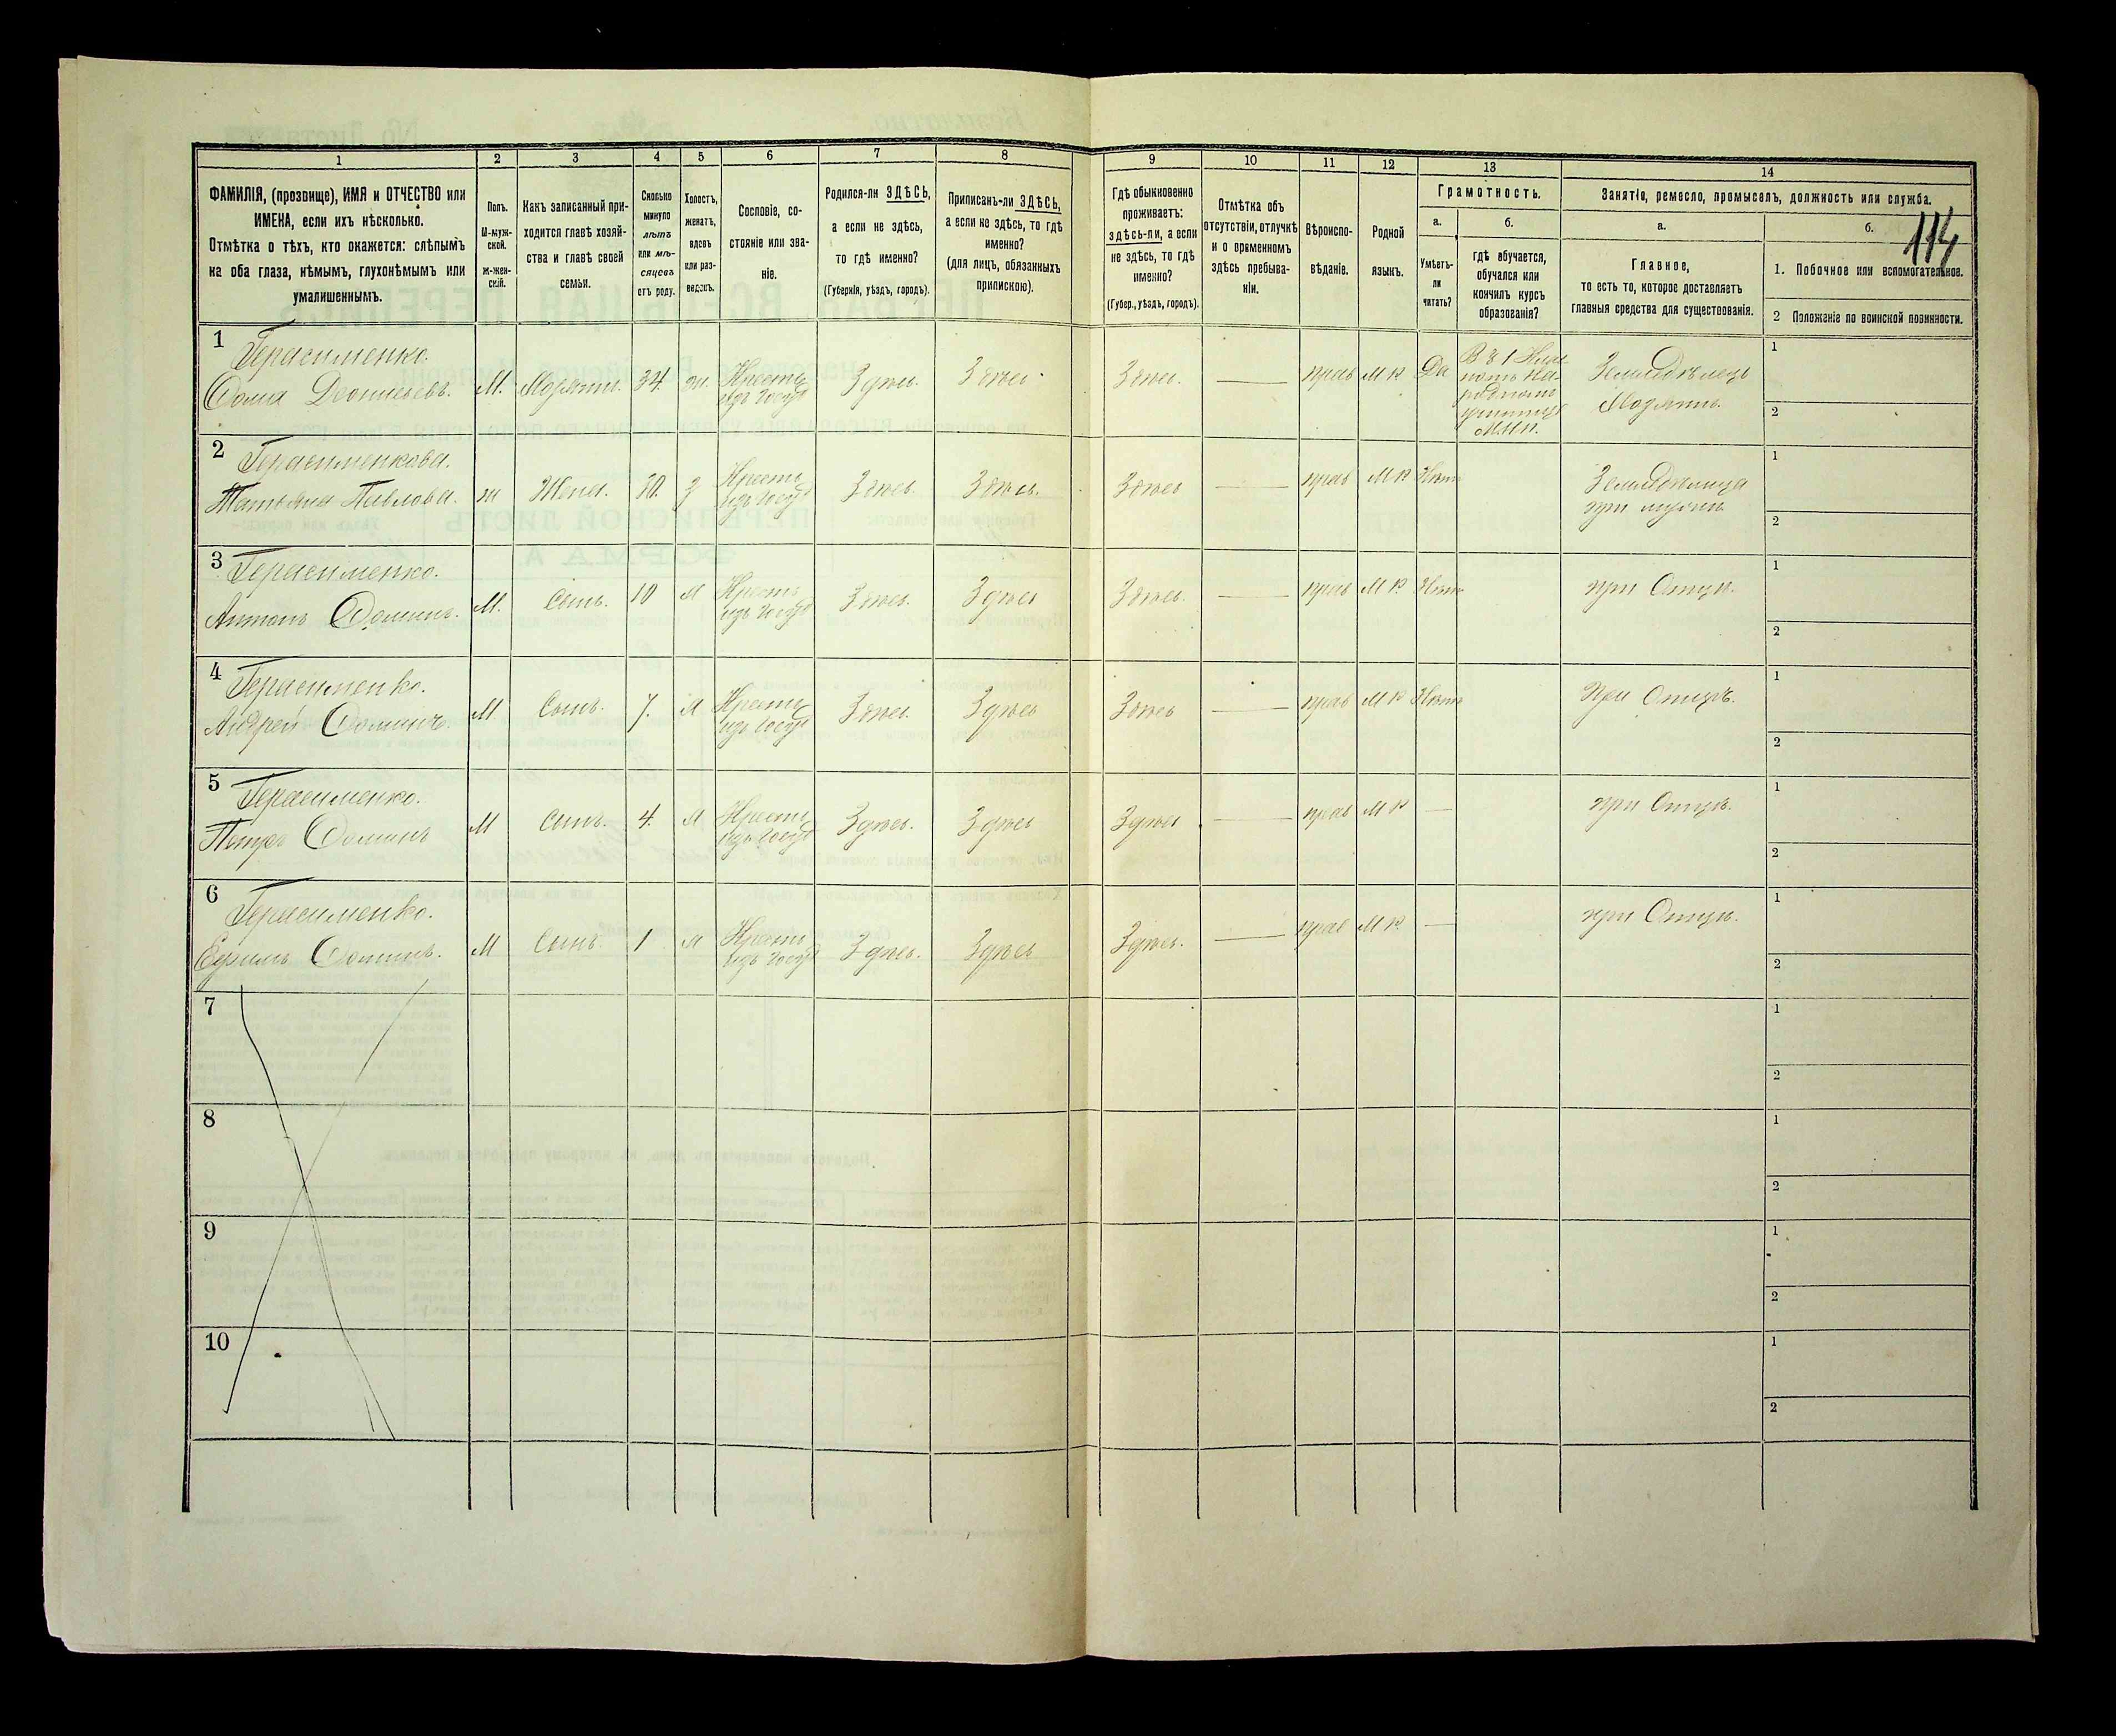 114
1
2
3
4
5
6
7
8
9
10
11
12
13
14
ФАМИЛІЯ, (прозвище), ИМЯ и ОТЧЕСТВО или
ИМЕНА, если ихъ нѣсколько.
Отмѣтка о тѣхъ, кто окажется: слѣпымъ
на оба глаза, нѣмымъ, глухонѣмымъ или
умалишеннымъ.
Полъ.
М-муж-
ской.
Ж-жен-
скій.
Какъ записанный при-
ходится главѣ хозяй-
ства и главѣ своей
семьи.
Сколько
минуло
лѣтъ
или мѣ-
сяцевъ
отъ роду.
Холостъ,
женатъ,
вдовъ
или раз-
веденъ.
Сословіе, со-
стояніе или зва-
ніе.
Родился-ли ЗДѢСЬ,
а если не здѣсь,
то гдѣ именно?
(Губернія, уѣздъ, городъ).
Приписанъ-ли ЗДѢСЬ,
а если не здѣсь, то гдѣ
именно?
(для лицъ, обязанныхъ
припискою).
Гдѣ обыкновенно
проживаетъ:
здѣсь-ли, а если
не здѣсь, то гдѣ
именно?
(Губер., уѣздъ, городъ).
Отмѣтка объ
отсутствіи, отлучкѣ
и о временномъ
здѣсь пребыва-
ніи.
Вѣроиспо-
вѣданіе.
Родной
языкъ.
Грамотность.
а.
Умѣетъ-
ли
читать?
б.
гдѣ обучается,
обучался или
кончилъ курсъ
образованія?
Занятіе, ремесло, промыселъ, должность или служба.
а.
Главное,
то есть то, которое доставляетъ
главныя средства для существованія.
б.
1. Побочное или вспомогательное.
2 Положеніе по воинской повинности.
1
Герасименко.
Фома Леонтьевъ.
М.
Хозяинъ.
34.
ж.
Крестъ
изъ госуд
Здѣсь.
Здѣсь.
Здѣсь.
—
прав
М Р
Да
училищѣ
М.Н.П.
Земледѣлецъ
Хозяинъ.
1
2
2
Герасименкова.
Татьяна Павлова.
ж
Жена.
30.
з
Крестъ
изъ госуд
Здѣсь.
Здѣсь.
Здѣсь
—
прав
М Р
Нѣтъ
Земледѣлица
при мужѣ
1
2
3
Герасименко.
Антонъ Фоминъ.
М.
Сынъ.
10
х
Крестъ
изъ госуд
Здѣсь.
Здѣсь
Здѣсь.
—
прав
М Р
Нѣтъ
при Отцѣ.
1
2
4
Герасименко.
Андрей Фоминъ.
М
Сынъ.
7.
х
Крестъ
изъ госуд
Здѣсь.
Здѣсь
Здѣсь
—
прав
М Р
Нѣтъ
При Отцѣ.
1
2
5
Герасименко.
Петръ Фоминъ
М
Сынъ.
4.
х
Крестъ
изъ госуд
Здѣсь.
Здѣсь
Здѣсь
—
прав
М Р
—
при Отцѣ.
1
2
6
Герасименко.
Ефимъ Фоминъ.
М
Сынъ.
1
х
Крестъ
изъ госуд
Здѣсь.
Здѣсь
Здѣсь.
—
прав
М Р
—
при Отцѣ.
1
2
7
1
2
8
1
2
9
1
2
10
1
2